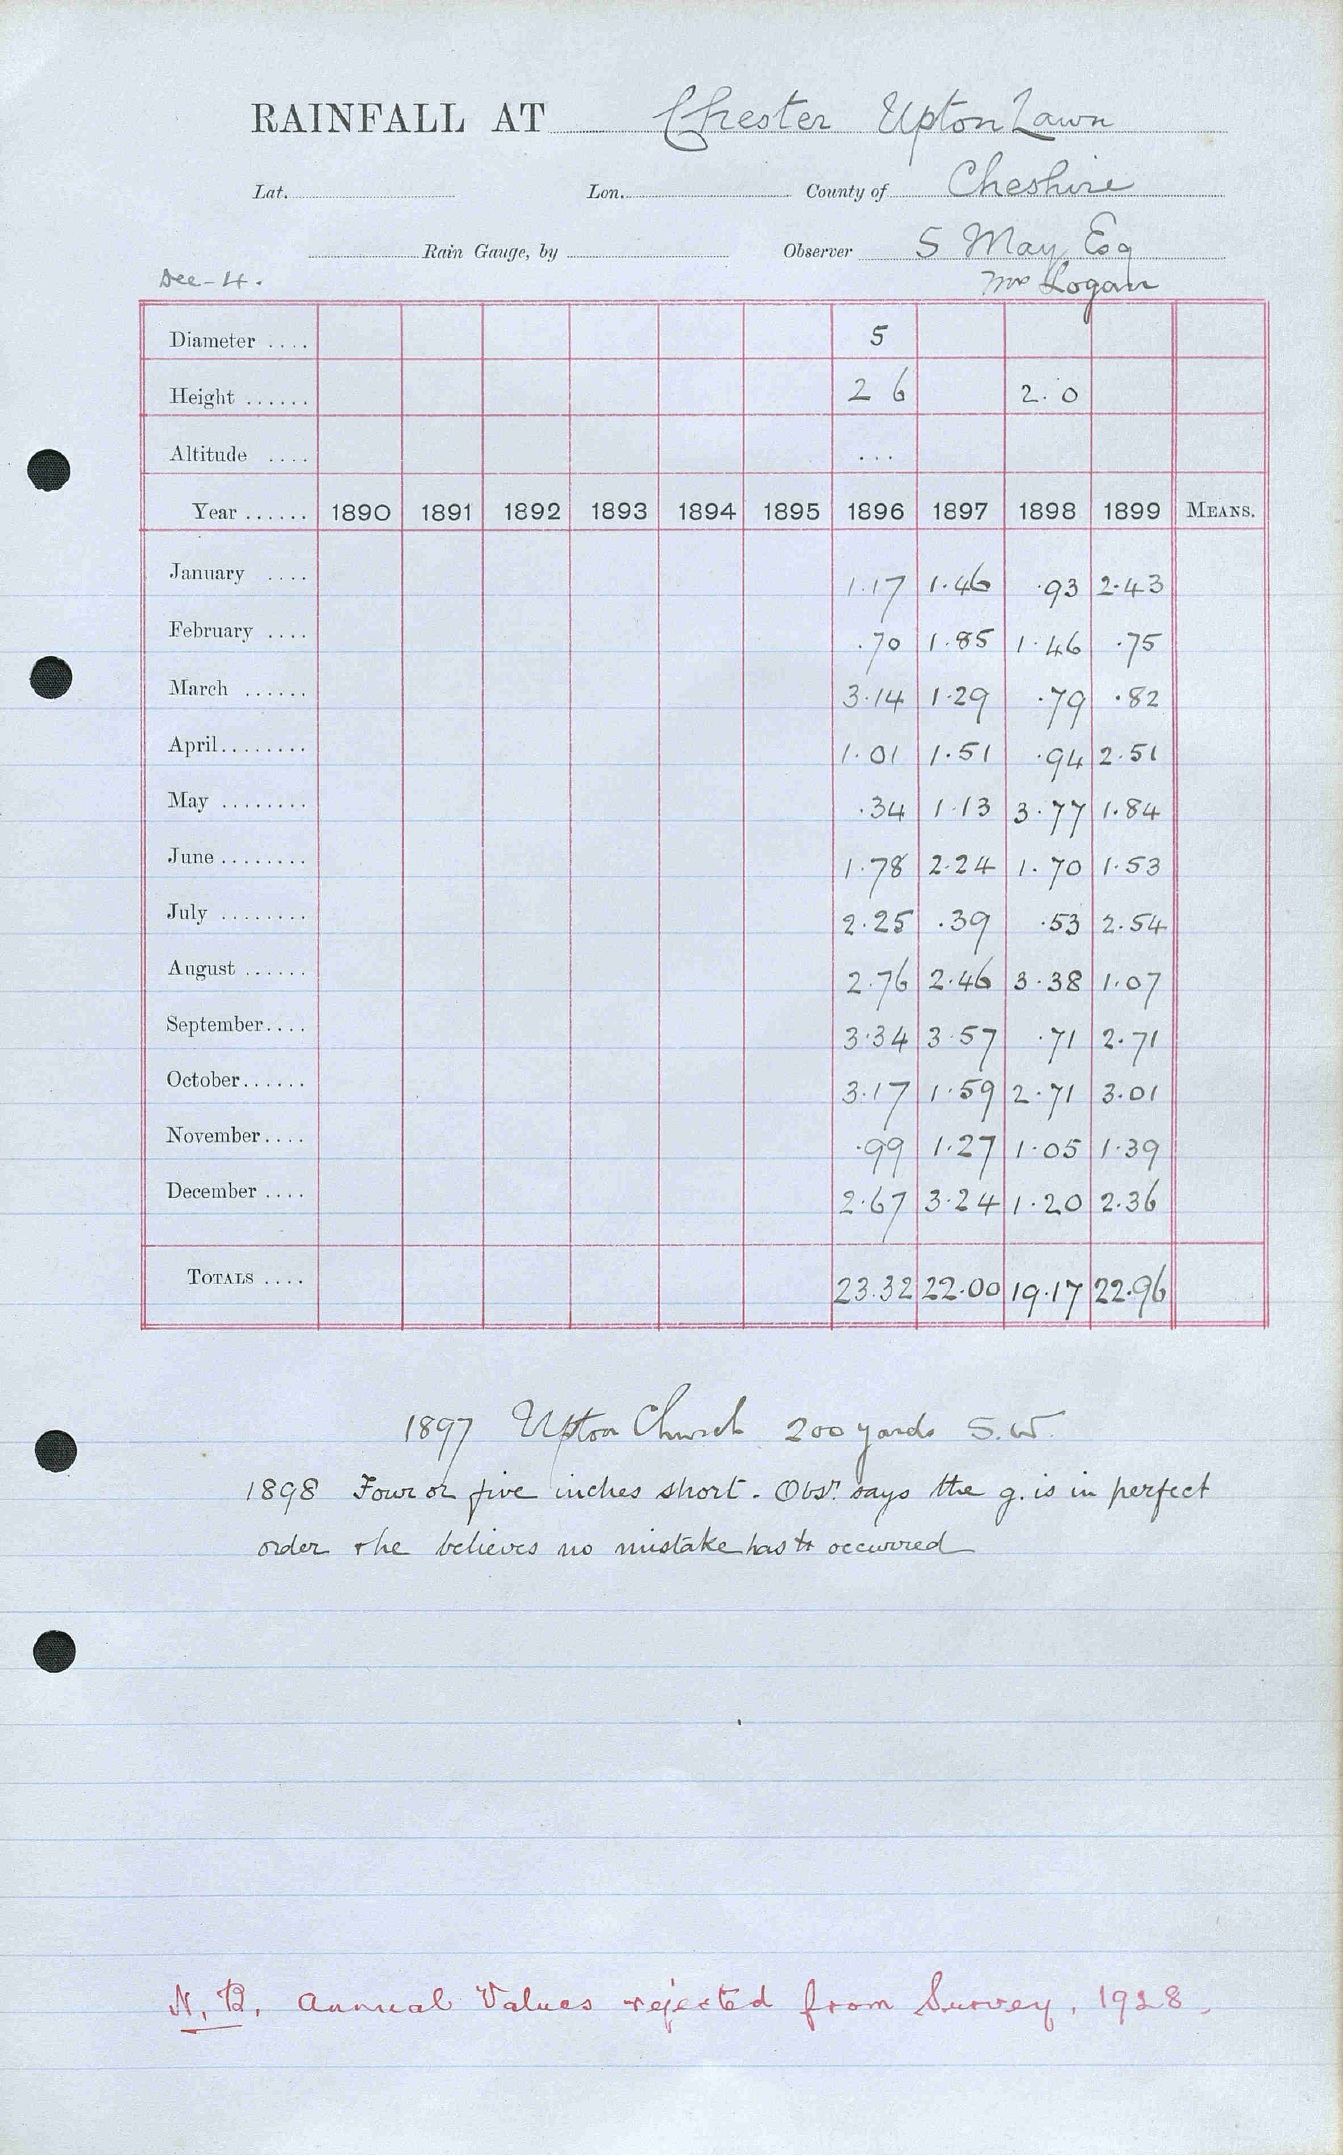 RAINFALL AT Chester Upton Lawn
Lat. Lon. County of Cheshire
Rain Gauge, by Observer S May Esq
Dec - 4. Mrs Logan
Diameter .... 5
Height ...... 2 6 2. 0
Altitude .... ...
Year ...... 1890 1891 1892 1893 1894 1895 1896 1897 1898 1899 MEANS.
January .... 1.17 1.46 .93 2.43
February .... .70 1.85 1.46 .75
March ...... 3.14 1.29 .79 .82
April........ 1.01 1.51 .94 2.51
May ........ .34 1.13 3.77 1.84
June ........ 1.78 2.24 1.70 1.53
July ........ 2.25 .39 .53 2.54
August ...... 2.76 2.46 3.38 1.07
September.... 3.34 3.57 .71 2.71
October...... 3.17 1.59 2.71 3.01
November.... .99 1.27 1.05 1.39
December .... 2.67 3.24 1.20 2.36
TOTALS .... 23.32 22.00 19.17 22.96
1897 Upton Church 200 yards S.W.
1898 Four or five inches short. Obsr. says the g. is in perfect
order & he believes no mistake has occurred
N.B. Annual Values rejected from Survey, 1928.